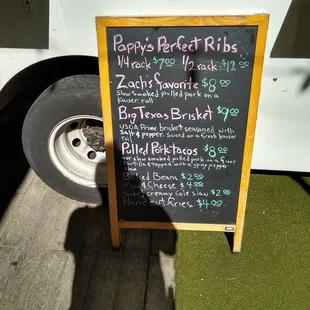 Pappy's Perfect Ribs
1/4 rack $7.00 1/2 rack $12.00
Zach's favorite $8.00
Slow smoked pulled pork on a
Kaiser roll
Big Texas Brisket $9.00
USDA Prime brisket seasoned with
Salt & pepper. Served on a
Pulled Pork tacos $8.00
our slow smoked pulled pork on a flour
tortilla & topped with a spicy pepper
Baked Beans $2.00
Mac & Cheese $4.00
creamy Cole Slaw $2.00
Hand cut fries $4.00